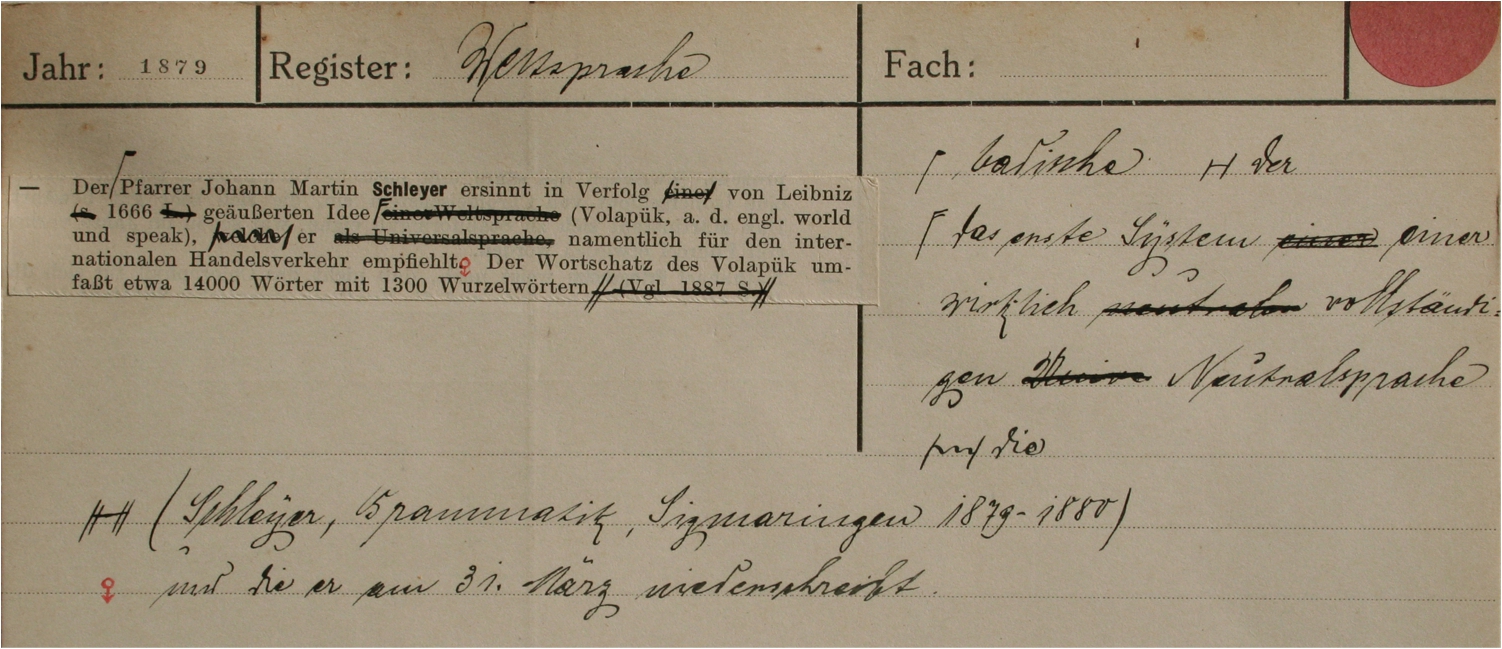 Jahr: 1879 Register: Weltsprache Fach:
— Der Pfarrer Johann Martin Schleyer ersinnt in Verfolg einer von Leibniz
(s. 1666 L.) geäußerten Idee einer Weltsprache (Volapük, a. d. engl. world
und speak), welche er als Universalsprache, namentlich für den inter-
nationalen Handelsverkehr empfiehlt. Der Wortschatz des Volapük um-
faßt etwa 14000 Wörter mit 1300 Wurzelwörtern (Vgl. 1887 S.)
badische der
das erste System einer einer
wirklich neutralen vollständi-
gen Neutralsprache
die
(Schleyer, Grammatik, Sigmaringen 1879-1880)
und die er am 31. März niederschreibt.